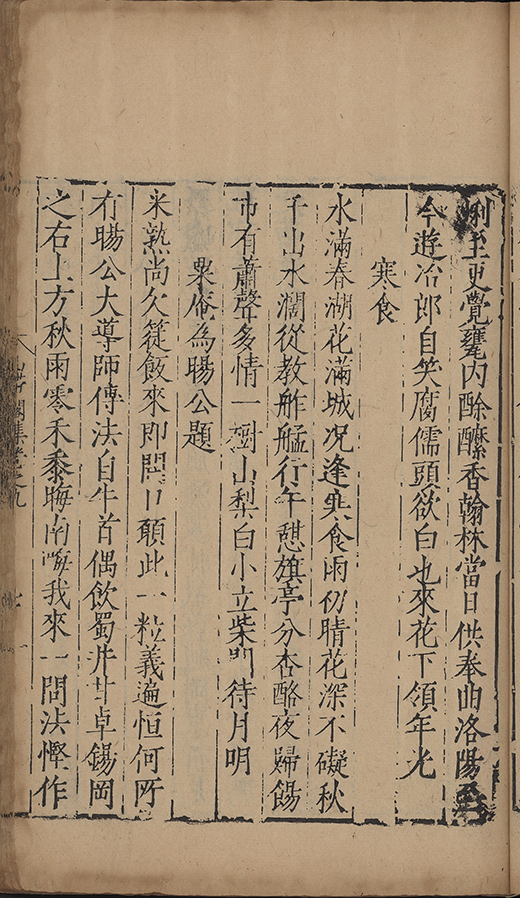 蜊至更覺甕內酴醿香翰林當日供奉曲洛陽至
今遊冶郎自笑腐儒頭欲白也來花下領年光
寒食
水滿春湖花滿城况逢寒食雨初晴花深不礙秋
千出水濶從教舴艋行午憩旗亭分杏酪夜歸餳
巿有蕭聲多情一樹山梨白小立柴門待月明
粟庵為暘公題
米熟尚欠簁飯來即開口顧此一粒義遍恒何所
有暘公大導師傳法自牛首偶飲蜀井甘卓錫岡
之右上方秋雨零禾黍晦南畝我來一問法慳作